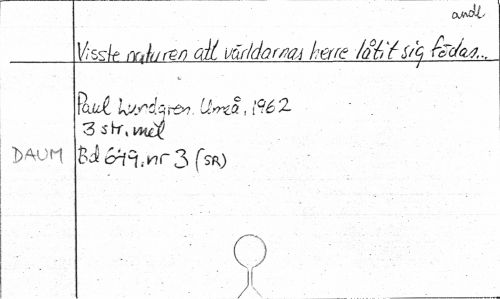 andl
Visste naturen att världarnas herre låtit sig födas...
Paul Lundgren, Umeå, 1962
3 str. mel
DAUM Bd 649. nr 3 (SR)